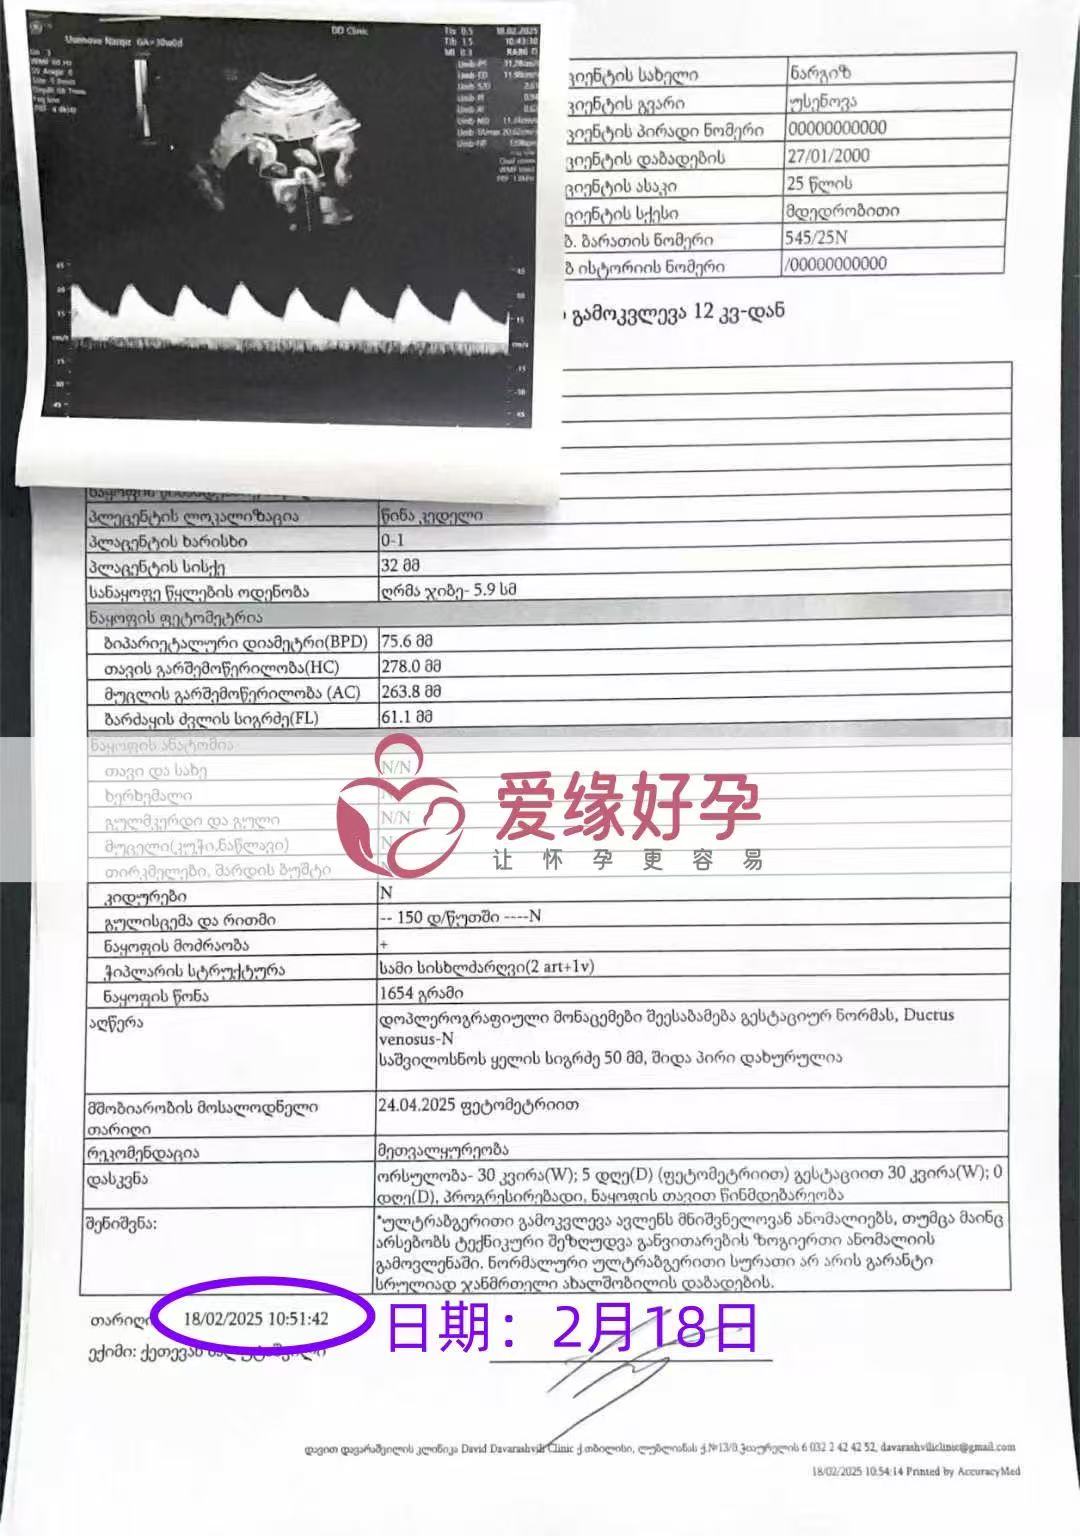 DD Clinic
18.02.2025
10:43:30
GA=30w0d
ციენტის სახელი ნარგიზ
ციენტის გვარი უსენოვა
ციენტის პირადი ნომერი 00000000000
ციენტის დაბადების 27/01/2000
ციენტის ასაკი 25 წლის
ციენტის სქესი მდედრობითი
ბ. ბარათის ნომერი 545/25N
ბ ისტორიის ნომერი /00000000000
გამოკვლევა 12 კვ-დან
პლეცენტის ლოკალიზაცია წინა კედელი
პლაცენტის ხარისხი 0-1
პლაცენტის სისქე 32 მმ
სანაყოფე წყლების ოდენობა ღრმა ჯიბე- 5.9 სმ
ნაყოფის ფეტომეტრია
ბიპარიეტალური დიამეტრი(BPD) 75.6 მმ
თავის გარშემოწერილობა(HC) 278.0 მმ
მუცლის გარშემოწერილობა (AC) 263.8 მმ
ბარძაყის ძვლის სიგრძე(FL) 61.1 მმ
ნაყოფის ანატომია
თავი და სახე N/N
ხერხემალი
გულმკერდი და გული N/N
მუცელი(კუჭი,ნაწლავი) N
თირკმელები, შარდის ბუშტი
爱缘好孕
让怀孕更容易
კიდურები N
გულისცემა და რითმი -- 150 დ/წუთში ----N
ნაყოფის მოძრაობა +
ჭიპლარის სტრუქტურა სამი სისხლძარღვი(2 art+1v)
ნაყოფის წონა 1654 გრამი
აღწერა დოპლეროგრაფიული მონაცემები შეესაბამება გესტაციურ ნორმას, Ductus
venosus-N
საშვილოსნოს ყელის სიგრძე 50 მმ, შიდა პირი დახურულია
მშობიარობის მოსალოდნელი 24.04.2025 ფეტომეტრიით
თარიღი
რეკომენდაცია მეთვალყურეობა
დასკვნა ორსულობა- 30 კვირა(W); 5 დღე(D) (ფეტომეტრიით) გესტაციით 30 კვირა(W); 0
დღე(D), პროგრესირებადი, ნაყოფის თავით წინმდებარეობა
შენიშვნა: *ულტრაბგერითი გამოკვლევა ავლენს მნიშვნელოვან ანომალიებს, თუმცა მაინც
არსებობს ტექნიკური შეზღუდვა განვითარების ზოგიერთი ანომალიის
გამოვლენაში. ნორმალური ულტრაბგერითი სურათი არ არის გარანტი
სრულიად ჯანმრთელი ახალშობილის დაბადების.
თარიღი 18/02/2025 10:51:42 日期：2月18日
ექიმი: ქეთევან
დავით დავარაშვილის კლინიკა David Davarashvili Clinic ქ.თბილისი, ლუბლიანას ქ.№13/ 6 032 2 42 42 52, davarashviliclinic@gmail.com
18/02/2025 10:54:14 Printed by AccuracyMed